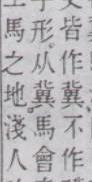 皆作冀不作
字形从冀馬會
馬之地淺人